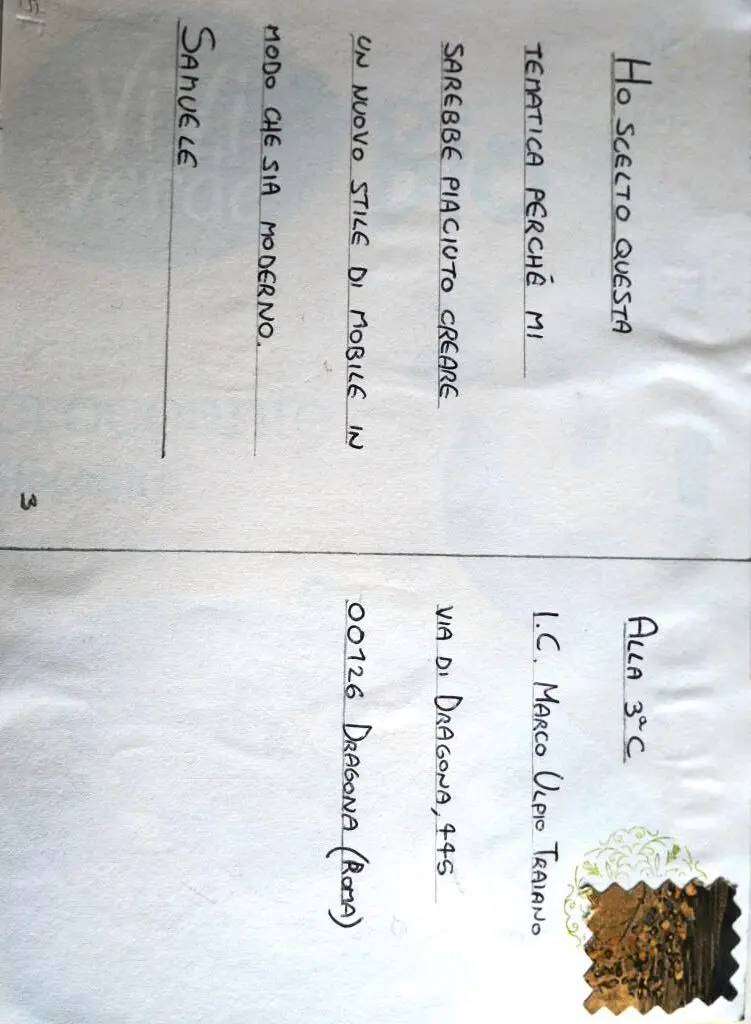 HO SCELTO QUESTA
TEMATICA PERCHÉ MI
SAREBBE PIACIUTO CREARE
UN NUOVO STILE DI MOBILE IN
MODO CHE SIA MODERNO.
SAMUELE
3
ALLA 3ªC
I.C. MARCO ULPIO TRAIANO
VIA DI DRAGONA, 445
00126 DRAGONA (ROMA)